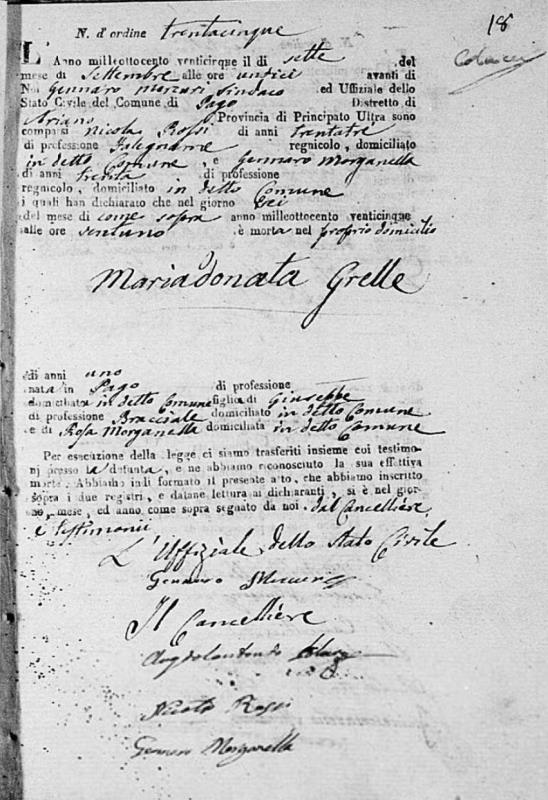 18
N. d'ordine trentacinque
L'Anno milleottocento venticinque il di sette del
mese di Settembre alle ore undici avanti di
Noi Gennaro Mercuri Sindaco ed Uffiziale dello
Stato Civile del Comune di Pago Distretto di
Ariano Provincia di Principato Ultra sono
comparsi Nicola Rossi di anni trentatrè
di professione regnicolo, domiciliato
in detto Comune, e Gennaro Morganella
di anni trenta di professione
regnicolo, domiciliato in detto Comune
i quali han dichiarato che nel giorno sei
del mese di come sopra anno milleottocento venticinque
alle ore ventuno è morta nel proprio domicilio
Mariadonata Grelle
di anni uno
nata in Pago di professione
domiciliata in detto Comune figlia di Giuseppe
di professione Bracciale domiciliato in detto Comune
e di Rosa Morganella domiciliata in detto Comune
Per esecuzione della legge ci siamo trasferiti insieme coi testimo-
nj presso la defunta, e ne abbiamo riconosciuto la sua effettiva
morte. Abbiamo indi formato il presente atto, che abbiamo inscritto
sopra i due registri, e datane lettura ai dichiaranti, si è nel gior-
no, mese, ed anno come sopra segnato da noi. dal Cancelliere
e Testimonii
L'Uffiziale dello Stato Civile
Gennaro Mercuri
Il Cancelliere
Nicola Rossi
Gennaro Morganella